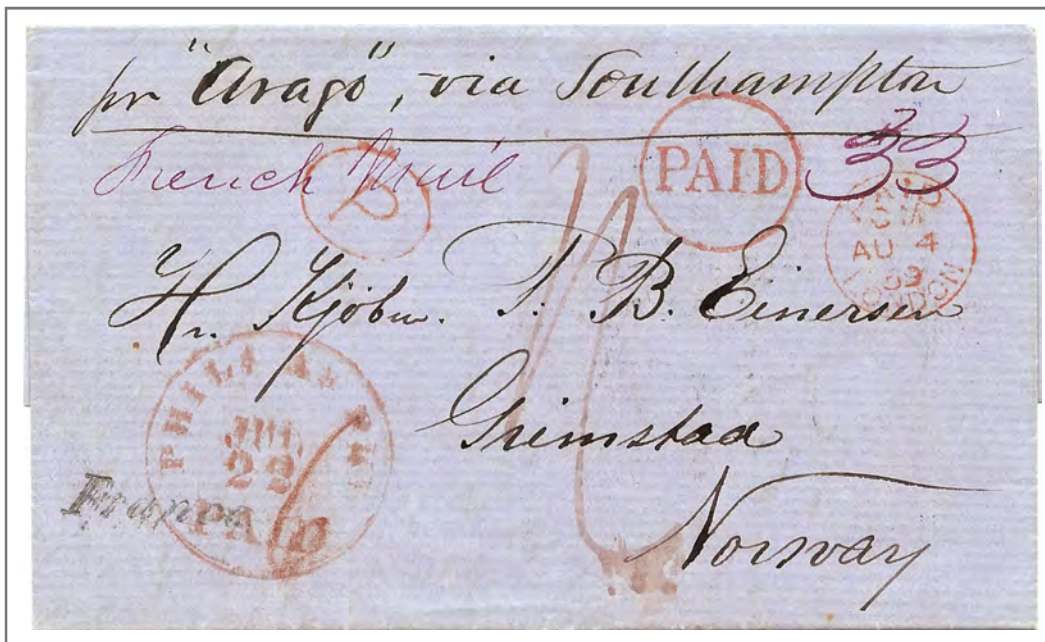 pr "Arago", via Southampton
French Mail
P
PAID
33
PAID
AU 4
59
LONDON
Hr. Kjøbm. P. B. Einersen
Grimstad
Norway
PHILA
JUL
22
PAID
Franco